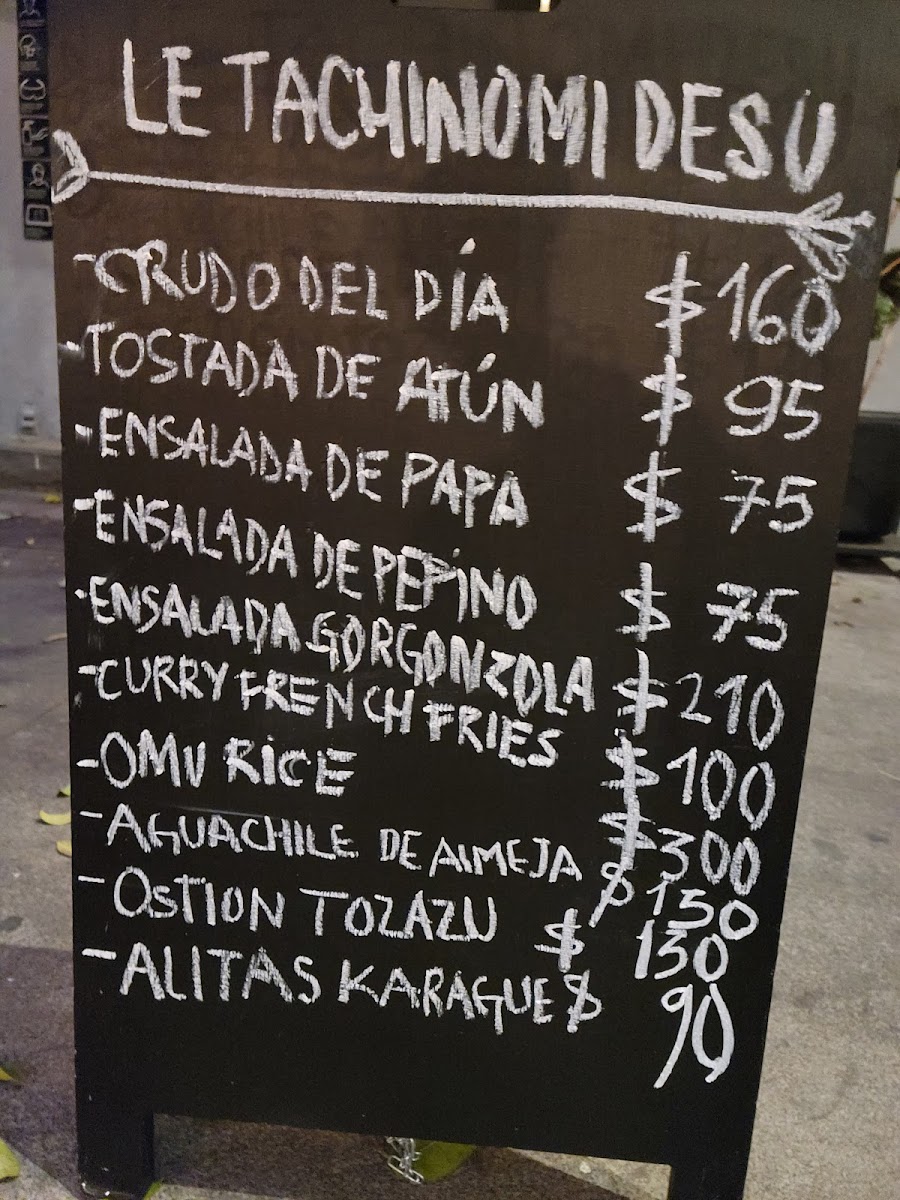 LE TACHINOMI DESU
-CRUDO DEL DÍA $160
-TOSTADA DE ATÚN $ 95
-ENSALADA DE PAPA $ 75
-ENSALADA DE PEPINO $ 75
-ENSALADA GORGONZOLA $210
-CURRY FRENCH FRIES $100
-OMU RICE $300
-AGUACHILE DE ALMEJA $150
-OSTION TOZAZU $ 130
-ALITAS KARAGUE $ 90